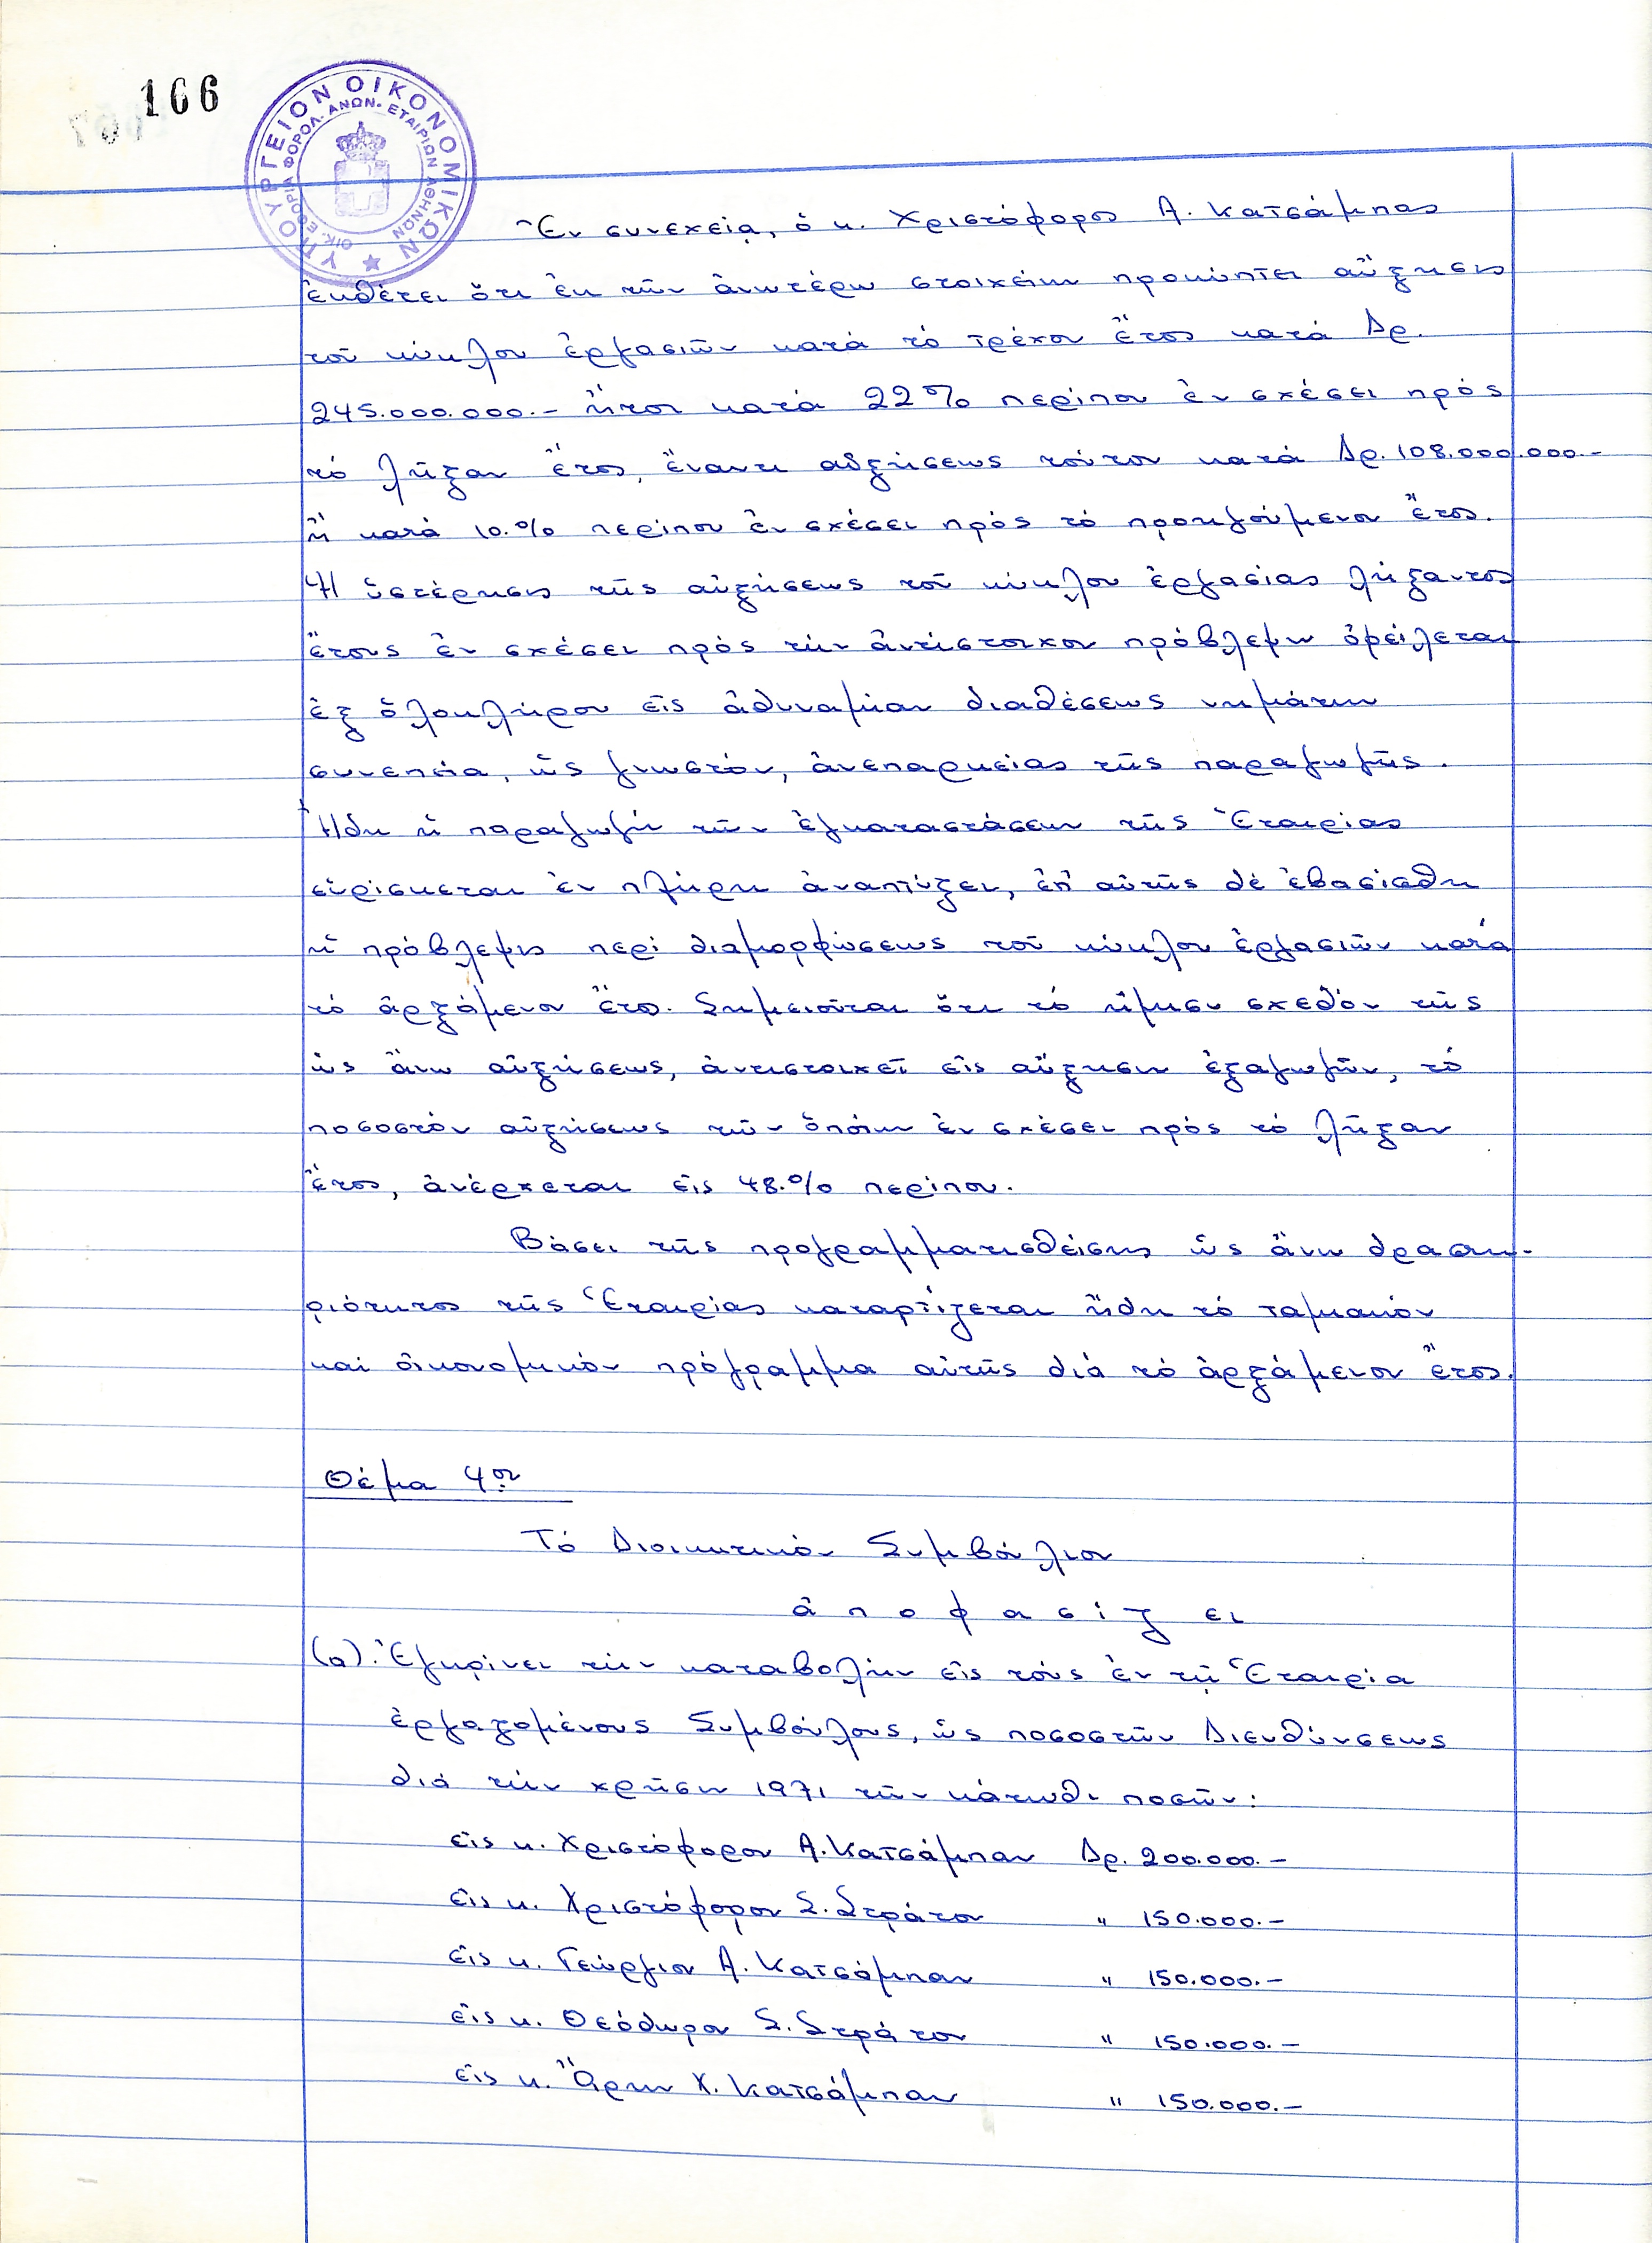 166
ΥΠΟΥΡΓΕΙΟΝ ΟΙΚΟΝΟΜΙΚΩΝ
ΟΙΚ. ΕΦΟΡΙΑ ΦΟΡΟΛ. ΑΝΩΝ. ΕΤΑΙΡΙΩΝ ΑΘΗΝΩΝ
Ἐν συνεχείᾳ, ὁ κ. Χριστόφορος Α. Κατσάμπας
ἐκθέτει ὅτι ἐκ τῶν ἀνωτέρω στοιχείων προκύπτει αὔξησις
τοῦ κύκλου ἐργασιῶν κατά τό τρέχον ἔτος κατά Δρ.
245.000.000.- ἤτοι κατά 22% περίπου ἐν σχέσει πρός
τό λῆξαν ἔτος, ἔναντι αὐξήσεως τούτου κατά Δρ. 108.000.000.-
ἤ κατά 10.% περίπου ἐν σχέσει πρός τό προηγούμενον ἔτος.
Ἡ ὑστέρησις τῆς αὐξήσεως τοῦ κύκλου ἐργασίας λήξαντος
ἔτους ἐν σχέσει πρός τήν ἀντίστοιχον πρόβλεψιν ὀφείλεται
ἐξ ὁλοκλήρου εἰς ἀδυναμίαν διαθέσεως νημάτων
συνεπεία, ὡς γνωστόν, ἀνεπαρκείας τῆς παραγωγῆς.
Ἤδη ἡ παραγωγή τῶν ἐγκαταστάσεων τῆς Ἑταιρίας
εὑρίσκεται ἐν πλήρη ἀναπτύξει, ἐπ' αὐτῆς δέ ἐβασίσθη
ἡ πρόβλεψις περί διαμορφώσεως τοῦ κύκλου ἐργασιῶν κατά
τό ἀρξάμενον ἔτος. Σημειοῦται ὅτι τό ἥμισυ σχεδόν τῆς
ὡς ἄνω αὐξήσεως, ἀντιστοιχεῖ εἰς αὔξησιν ἐξαγωγῶν, τό
ποσοστόν αὐξήσεως τῶν ὁποίων ἐν σχέσει πρός τό λῆξαν
ἔτος, ἀνέρχεται εἰς 48.% περίπου.
Βάσει τῆς προγραμματισθείσης ὡς ἄνω δραστη-
ριότητος τῆς Ἑταιρίας καταρτίζεται ἤδη τό ταμιακόν
καί οἰκονομικόν πρόγραμμα αὐτῆς διά τό ἀρξάμενον ἔτος.
Θέμα 4ον
Τό Διοικητικόν Συμβούλιον
ἀ π ο φ α σ ί ζ ει
(α). Ἐγκρίνει τήν καταβολήν εἰς τούς ἐν τῇ Ἑταιρία
ἐργαζομένους Συμβούλους, ὡς ποσοστῶν Διευθύνσεως
διά τήν χρῆσιν 1971 τῶν κάτωθι ποσῶν:
εἰς κ. Χριστόφορον Α. Κατσάμπαν Δρ. 200.000.-
εἰς κ. Χριστόφορον Σ. Στράτον " 150.000.-
εἰς κ. Γεώργιον Α. Κατσάμπαν " 150.000.-
εἰς κ. Θεόδωρον Σ. Στράτον " 150.000.-
εἰς κ. Ἄρην Χ. Κατσάμπαν " 150.000.-